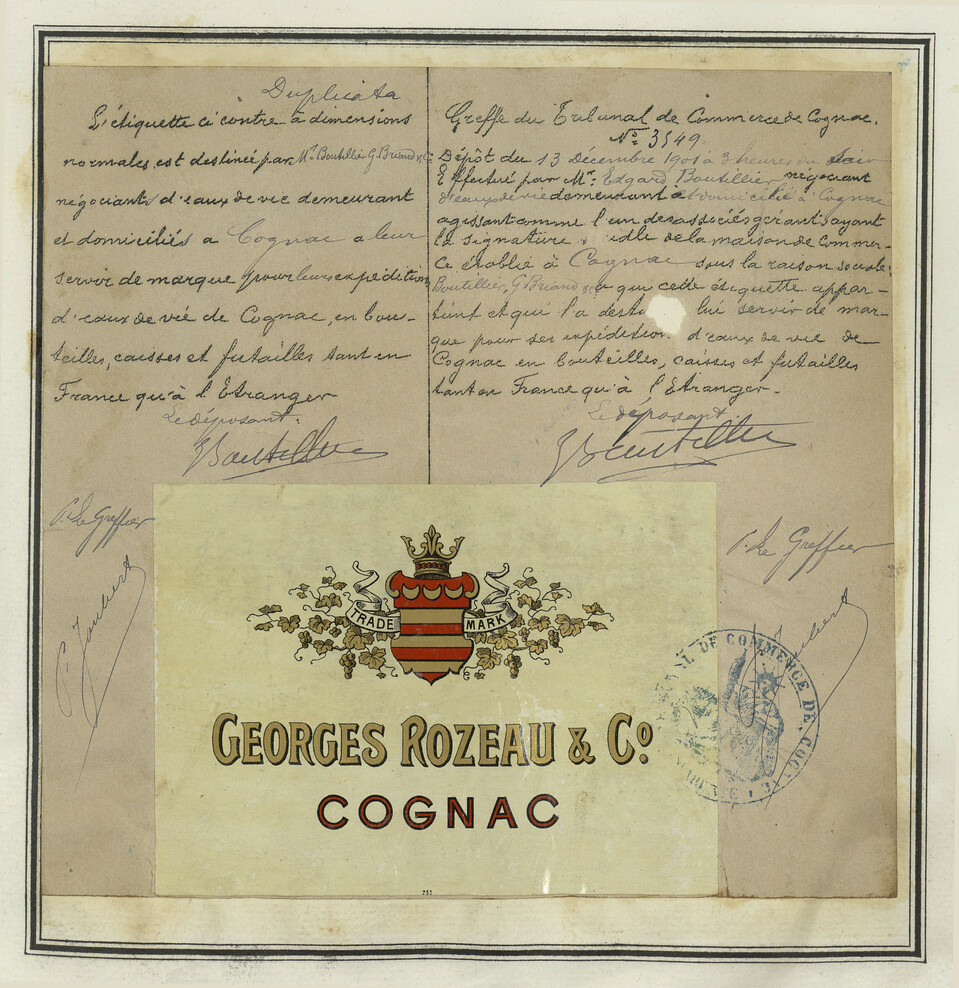 Duplicata
L'étiquette ci contre à dimensions
normales est destinée par Mrs Boutillier G. Briand & Cie
négociants d'eaux de vie demeurant
et domiciliés a Cognac a leur
servir de marque pour leurs expéditions
d'eaux de vie de Cognac, en bou-
teilles, caisses et futailles tant en
France qu'à l'Etranger
Le déposant.
EBoutillier
P. Le Greffier
P. Joubert
Greffe du Tribunal de Commerce de Cognac.
No. 3549
Dépôt du 13 Décembre 1901 à 3 heures du soir
Effectué par Mr. Edgard Boutillier négociant
d'eaux de vie demeurant et domicilié à Cognac
agissant comme l'un des associés gérants ayant
la signature de la maison de Commer-
ce établie à Cognac sous la raison sociale
Boutillier, G. Briand & Cie a qui cette étiquette appar-
tient et qui l'a desti lui servir de mar-
que pour ses expédition d'eaux de vie de
Cognac en bouteilles, caisses et futailles
tant en France qu'à l'Etranger.
Le déposant.
EBoutillier
P. Le Greffier
Joubert
TRADE MARK
GEORGES ROZEAU & Co.
COGNAC
751
DE COMMERCE DE COGNAC